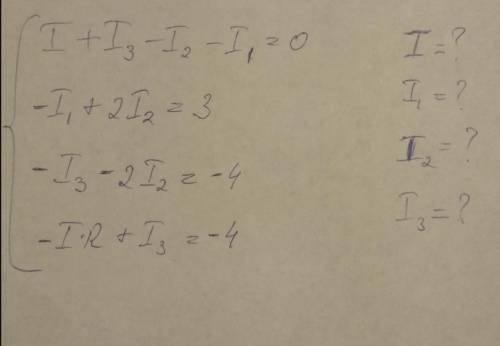 I + I₃ - I₂ - I₁ = 0
-I₁ + 2I₂ = 3
-I₃ - 2I₂ = -4
-I·R + I₃ = -4
I = ?
I₁ = ?
I₂ = ?
I₃ = ?